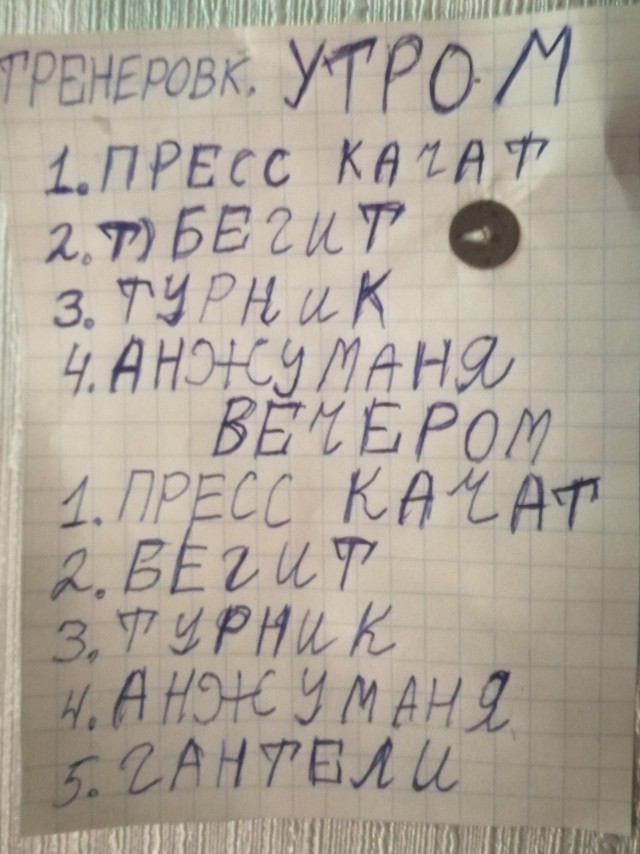 ТРЕНЕРОВК. УТРОМ
1. ПРЕСС КАЧАТ
2. Т) БЕГИТ
3. ТУРНИК
4. АНЖУМАНЯ
ВЕЧЕРОМ
1. ПРЕСС КАЧАТ
2. БЕГИТ
3. ТУРНИК
4. АНЖУМАНЯ
5. ГАНТЕЛИ